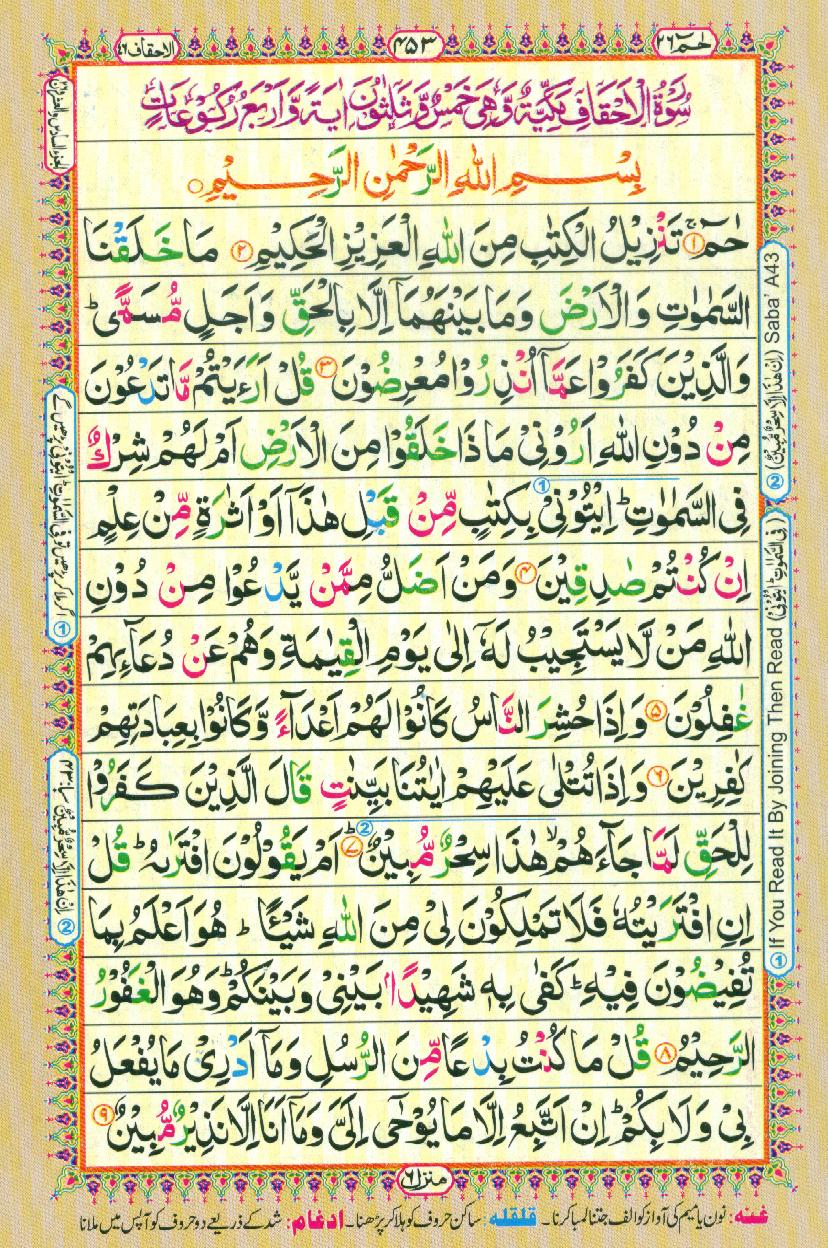 حٰمٓ ٢٦
٤٥٣
الاحقاف ٤٦
سُوْرَةُ الْاَحْقَافِ مَكِّيَّةٌ وَّهِىَ خَمْسٌ وَّثَلٰثُوْنَ اٰيَةً وَّاَرْبَعُ رُكُوْعَاتٍ
بِسْمِ اللّٰهِ الرَّحْمٰنِ الرَّحِيْمِ ○
حٰمٓ ۚ ① تَنْزِيْلُ الْكِتٰبِ مِنَ اللّٰهِ الْعَزِيْزِ الْحَكِيْمِ ② مَا خَلَقْنَا
السَّمٰوٰتِ وَالْاَرْضَ وَمَا بَيْنَهُمَاۤ اِلَّا بِالْحَقِّ وَاَجَلٍ مُّسَمًّى ؕ
وَالَّذِيْنَ كَفَرُوْا عَمَّاۤ اُنْذِرُوْا مُعْرِضُوْنَ ③ قُلْ اَرَءَيْتُمْ مَّا تَدْعُوْنَ
مِنْ دُوْنِ اللّٰهِ اَرُوْنِىْ مَاذَا خَلَقُوْا مِنَ الْاَرْضِ اَمْ لَهُمْ شِرْكٌ
فِى السَّمٰوٰتِ ؕ اِيْتُوْنِىْ بِكِتٰبٍ مِّنْ قَبْلِ هٰذَاۤ اَوْ اَثٰرَةٍ مِّنْ عِلْمٍ
اِنْ كُنْتُمْ صٰدِقِيْنَ ④ وَمَنْ اَضَلُّ مِمَّنْ يَّدْعُوْا مِنْ دُوْنِ
اللّٰهِ مَنْ لَّا يَسْتَجِيْبُ لَهٗۤ اِلٰى يَوْمِ الْقِيٰمَةِ وَهُمْ عَنْ دُعَآءِهِمْ
غٰفِلُوْنَ ⑤ وَاِذَا حُشِرَ النَّاسُ كَانُوْا لَهُمْ اَعْدَآءً وَّكَانُوْا بِعِبَادَتِهِمْ
كٰفِرِيْنَ ⑥ وَاِذَا تُتْلٰى عَلَيْهِمْ اٰيٰتُنَا بَيِّنٰتٍ قَالَ الَّذِيْنَ كَفَرُوْا
لِلْحَقِّ لَمَّا جَآءَهُمْ ۙ هٰذَا سِحْرٌ مُّبِيْنٌ ؕ ⑦ اَمْ يَقُوْلُوْنَ افْتَرٰىهُ ؕ قُلْ
اِنِ افْتَرَيْتُهٗ فَلَا تَمْلِكُوْنَ لِىْ مِنَ اللّٰهِ شَيْـًٔا ؕ هُوَ اَعْلَمُ بِمَا
تُفِيْضُوْنَ فِيْهِ ؕ كَفٰى بِهٖ شَهِيْدًۢا بَيْنِىْ وَبَيْنَكُمْ ؕ وَهُوَ الْغَفُوْرُ
الرَّحِيْمُ ⑧ قُلْ مَا كُنْتُ بِدْعًا مِّنَ الرُّسُلِ وَمَاۤ اَدْرِىْ مَا يُفْعَلُ
بِىْ وَلَا بِكُمْ ؕ اِنْ اَتَّبِعُ اِلَّا مَا يُوْحٰۤى اِلَىَّ وَمَاۤ اَنَا اِلَّا نَذِيْرٌ مُّبِيْنٌ ⑨
منزل ٦
غنه: نون یا میم کی آواز کو الف جتنا لمبا کرنا۔ قلقله: ساکن حروف کو ہلا کر پڑھنا۔ ادغام: شد کے ذریعے دو حروف کو آپس میں ملانا
الجزء السادس والعشرون
① If You Read It By Joining Then Read (فِى السَّمٰوٰتِ ايْتُوْنِىْ)
② (اِنْ هٰذَا اِلَّا سِحْرٌ مُّبِيْنٌ) Saba' A43
② اِنْ هٰذَا اِلَّا سِحْرٌ مُّبِيْنٌ